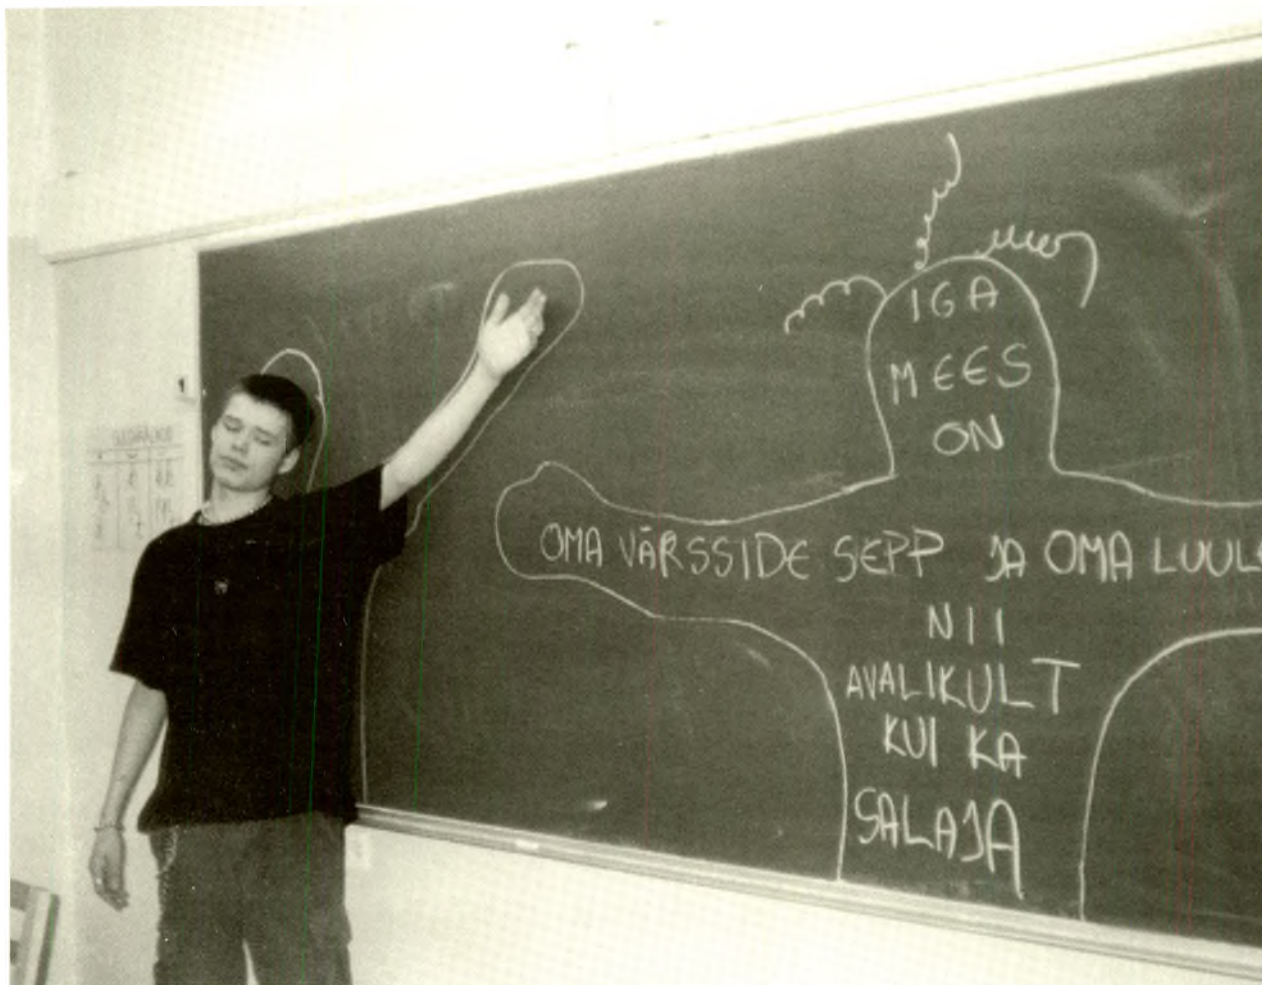 IGA
MEES
ON
OMA VÄRSSIDE SEPP JA OMA LUULE
NII
AVALIKULT
KUI KA
SALAJA